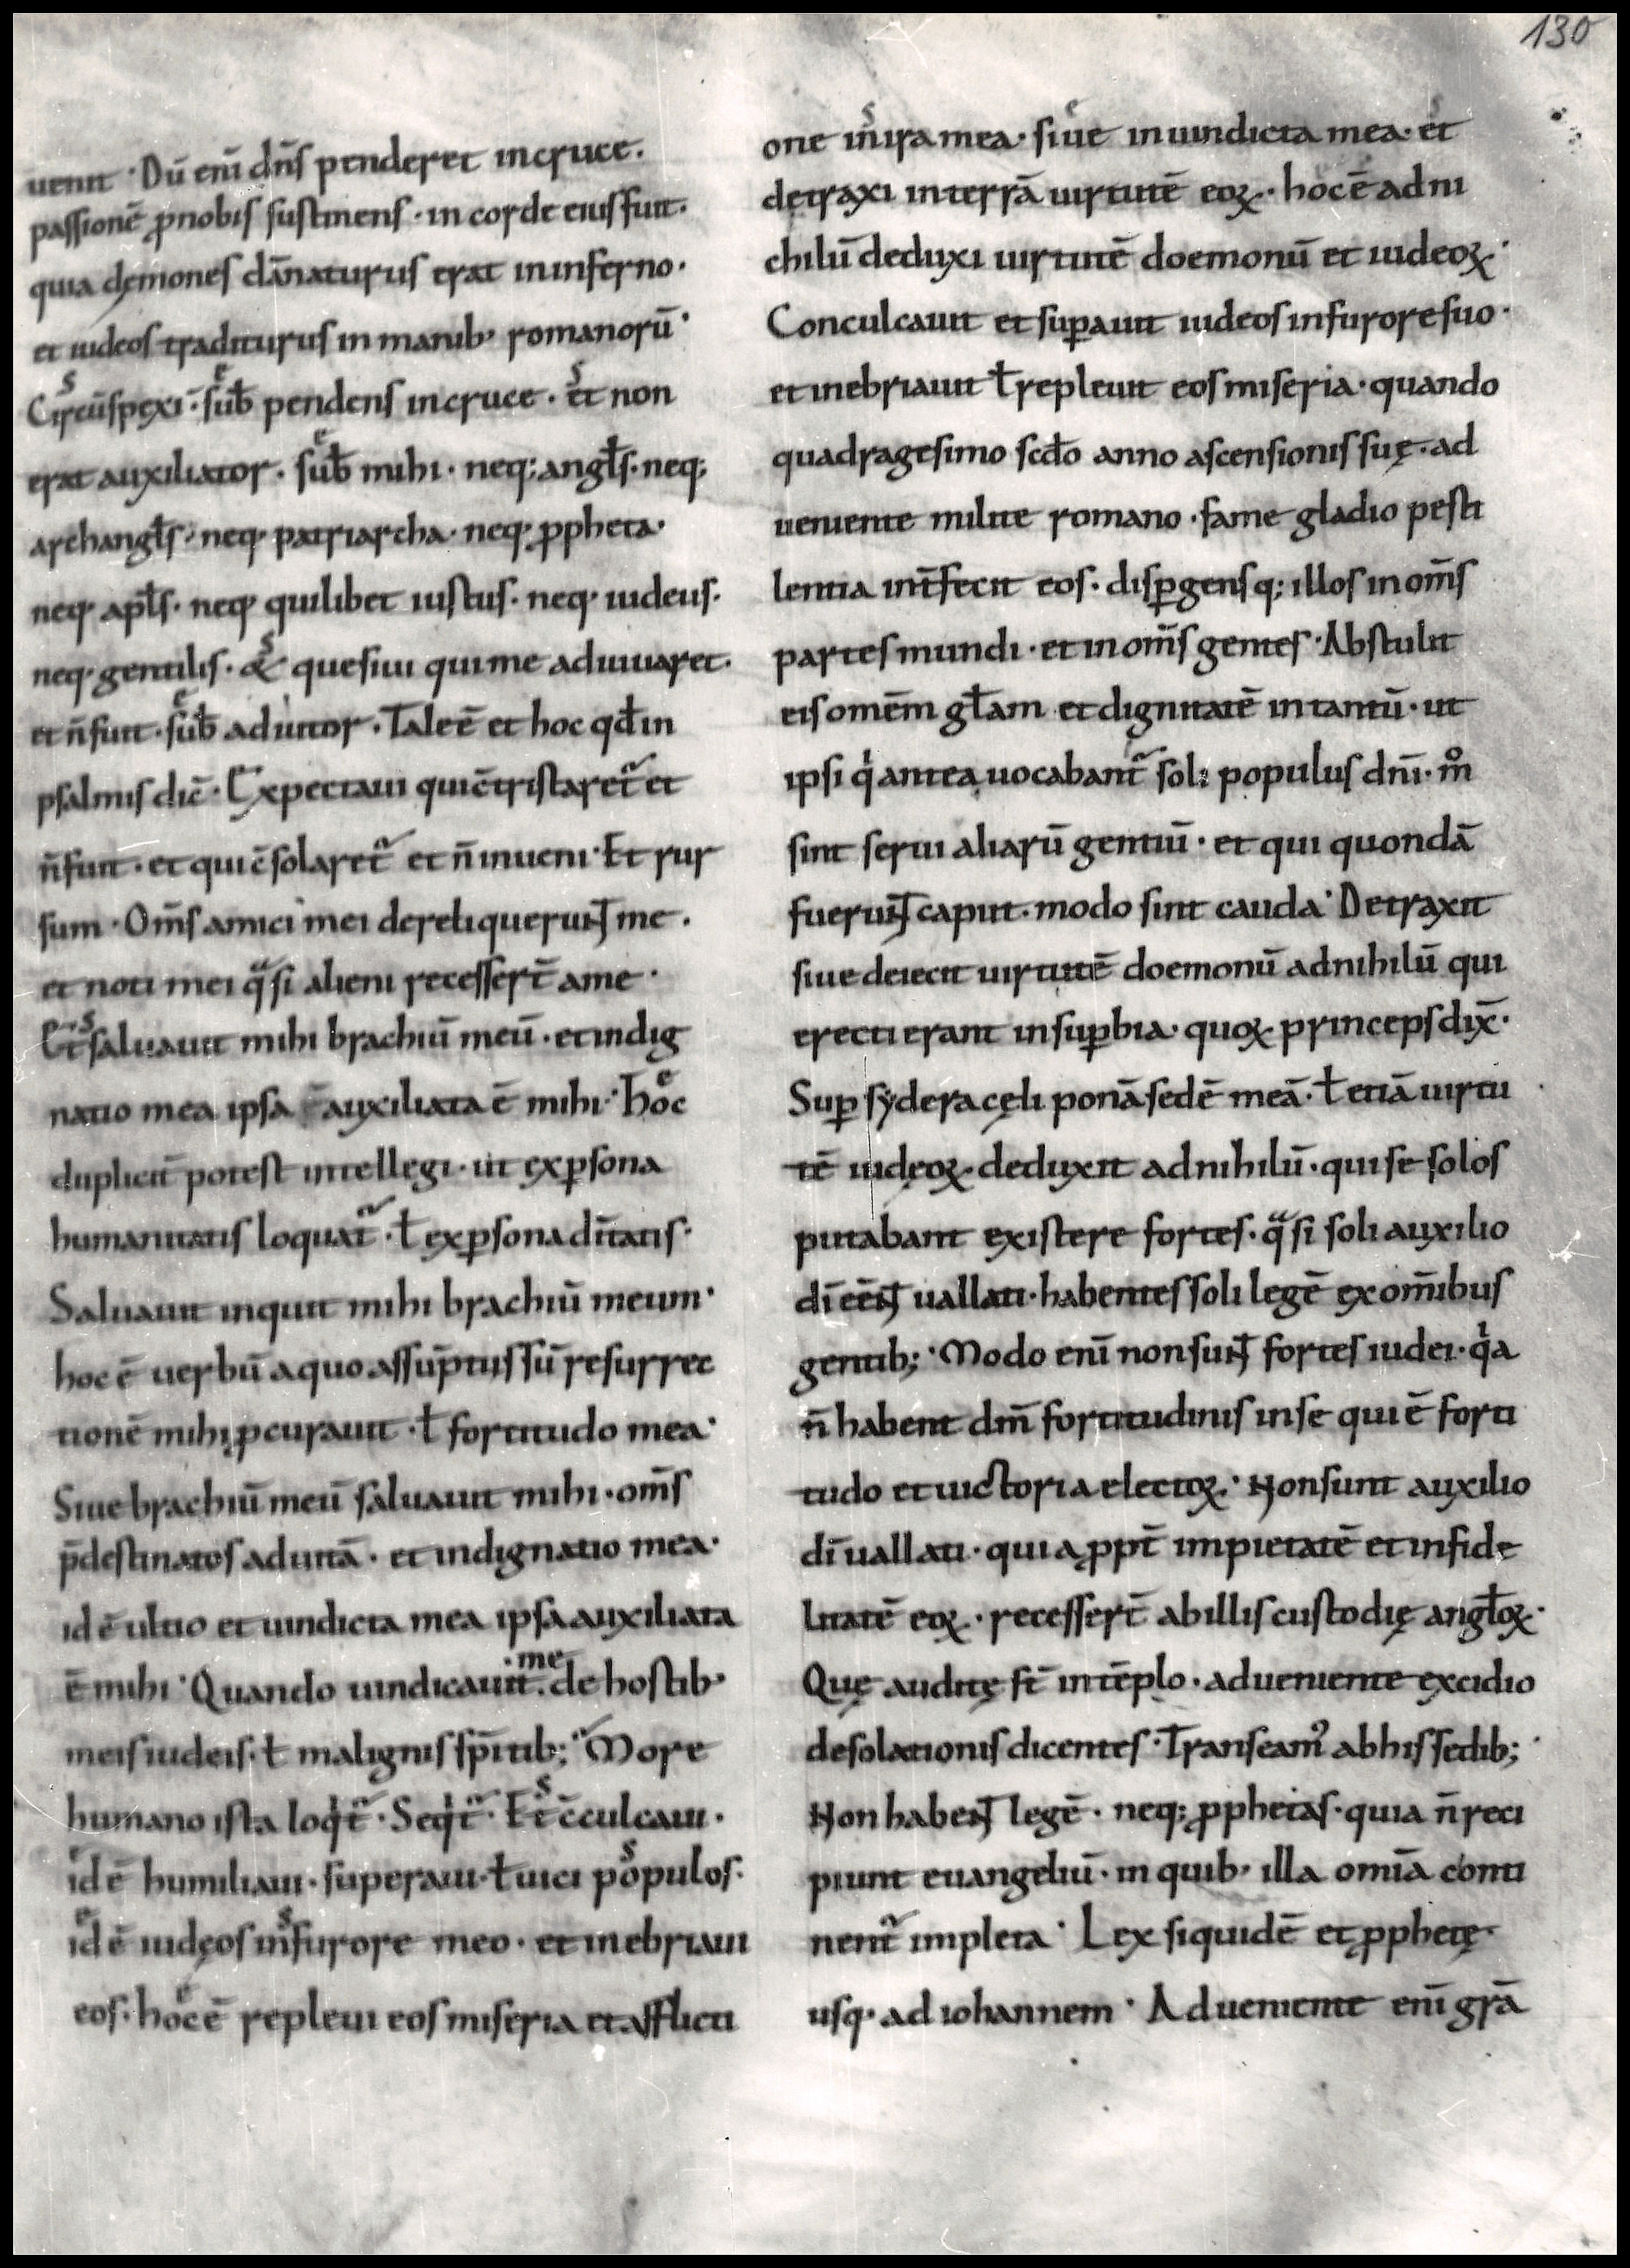 130
uenit · Dū eni̅ dn̅s penderet in cruce.
passionē ꝓnobis sustinens · in corde eius fuit.
quia dęmones dānaturus erat in inferno·
et iudeos traditurus in manib· romanorū·
Circūspexi · sub̅ pendens in cruce · et non
erat auxiliator · sub̅ mihi · neq; angl̅s · neq;
archangl̅s · neq· patriarcha · neq· ꝓpheta·
neq· apl̅s · neq· quilibet iustus · neq· iudeus·
neq· gentilis · & quesiui qui me adiuuaret·
et n̅ fuit · sub̅ adiutor · Tale ē et hoc qd̅ in
psalmis dic̅ · Expectaui qui c̅tristaret̅ et
n̅ fuit · et qui c̅solaret̅ et n̅ inueni · Et rur
sum · Om̅s amici mei dereliquerunt me ·
et noti mei qͣsi alieni recesser̅t a me ·
Et saluauit mihi brachiū meū · et indig
natio mea ipsa auxiliata ē mihi · hoc
duplicit̅ potest intellegi · ut ex ꝑsona
humanitatis loquat̅ · ł ex ꝑsona di̅tatis·
Saluauit inquit mihi brachiū meum·
hoc ē uerbū a quo assūptus sū resurrec
tionē mihi ꝓcurauit · ł fortitudo mea·
Siue brachiū meū saluauit mihi · om̅s
p̅destinatos ad uitā · et indignatio mea·
id ē ultio et uindicta mea ipsa auxiliata
·me
ē mihi · Quando uindicauit · de hostib·
meis iudeis · ł malignis sp̅itib; · More
humano ista loqͥt̅ · Seqͥt̅ · Et c̅culcaui ·
id ē humiliaui · superaui · ł uici populos·
id ē iudęos in furore meo · et inebriaui
eos · hoc ē repleui eos miseria et afflicti
one in ira mea · siue in uindicta mea · et
detraxi in terrā uirtutē eoꝝ · hoc ē ad ni
chilū deduxi uirtutē doemonū et iudeoꝝ·
Conculcauit et suꝑauit iudeos in furore suo·
et inebriauit ł repleuit eos miseria · quando
quadragesimo scd̅o anno ascensionis suę · ad
ueniente milite romano · fame gladio pesti
lentia int̅fecit eos · disꝑgensq; illos in om̅s
partes mundi · et in om̅s gentes · Abstulit
eis omēm gl̅am et dignitatē in tantū · ut
ipsi qͥ antea uocabant̅ soli populus dn̅i · m̊
sint serui aliarū gentiū · et qui quondā
fuerunt caput · modo sint cauda · Detraxit
siue deiecit uirtutē doemonū ad nihilū qui
erecti erant in suꝑbia · quoꝝ princeps dix̅·
Suꝑ sydera cęli ponā sedē meā · ł etiā uirtu
tē iudęoꝝ · deduxit ad nihilū · qui se solos
putabant existere fortes · qͣsi soli auxilio
di̅ ēēnt uallati · habentes soli legē ex om̅ibus
gentib; · Modo eni̅ non sunt fortes iudei · qͥa
n̅ habent dm̅ fortitudinis in se qui ē forti
tudo et uictoria electoꝝ · Non sunt auxilio
di̅ uallati · quia ꝓpt̅ impietatē et infide
litatē eoꝝ · recesser̅t ab illis custodię angl̅oꝝ·
Quę auditę st̅ in tēplo · adueniente excidio
desolationis dicentes · Transeamꝰ ab his sedib; ·
Non habent legē · neq; ꝓphetas · quia n̅ reci
piunt euangeliū · in quib· illa om̅ia conti
nent̅ impleta · Lex siquidē et ꝓphetę·
usq· ad iohannem · Adueniente eni̅ gr̅a